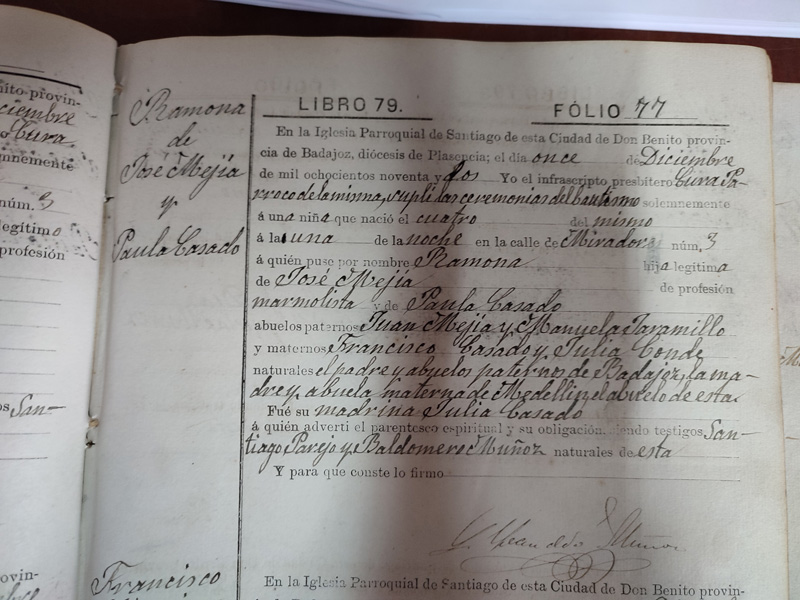 LIBRO 79. FÓLIO 77
Ramona
de
José Mejía
y
Paula Casado
En la Iglesia Parroquial de Santiago de esta Ciudad de Don Benito provin-
cia de Badajoz, diócesis de Plasencia; el dia once de Diciembre
de mil ochocientos noventa y dos Yo el infrascripto presbitero Cura Pá-
rroco de la misma, suplí las ceremonias del bautismo solemnemente
á una niña que nació el cuatro del mismo
á la una de la noche en la calle de Miradores núm. 3
á quién puse por nombre Ramona hija legítima
de José Mejía de profesión
marmolista y de Paula Casado
abuelos paternos Juan Mejía y Manuela Jaramillo
y maternos Francisco Casado y Julia Conde
naturales el padre y abuelos paternos de Badajoz, la ma-
dre y abuela materna de Medellin, el abuelo de esta
Fué su madrina Julia Casado
á quién advertí el parentesco espiritual y su obligación, siendo testigos San-
tiago Parejo y Baldomero Muñoz naturales de esta
Y para que conste lo firmo
Muñoz
Francisco
En la Iglesia Parroquial de Santiago de esta Ciudad de Don Benito provin-
nito provin-
ciembre
Cura
lemnemente
núm. 3
legítimo
e profesión
os San-
ovin-